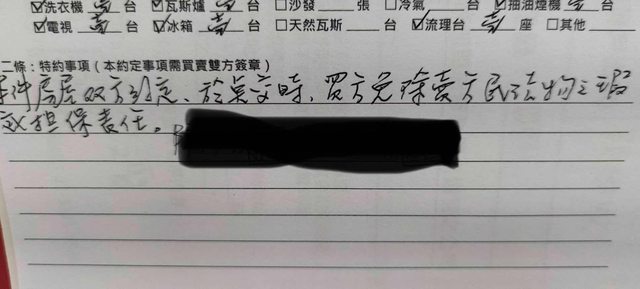 ☑洗衣機 壹 台 ☑瓦斯爐 壹 台 ☐沙發 張 ☐冷氣 台 ☑抽油煙機 壹 台
☑電視 壹 台 ☑冰箱 壹 台 ☐天然瓦斯 台 ☑流理台 壹 座 ☐其他
二條：特約事項（本約定事項需買賣雙方簽章）
件房屋双方約定、於點交時、買方免除賣方民法物之瑕
疵担保責任。